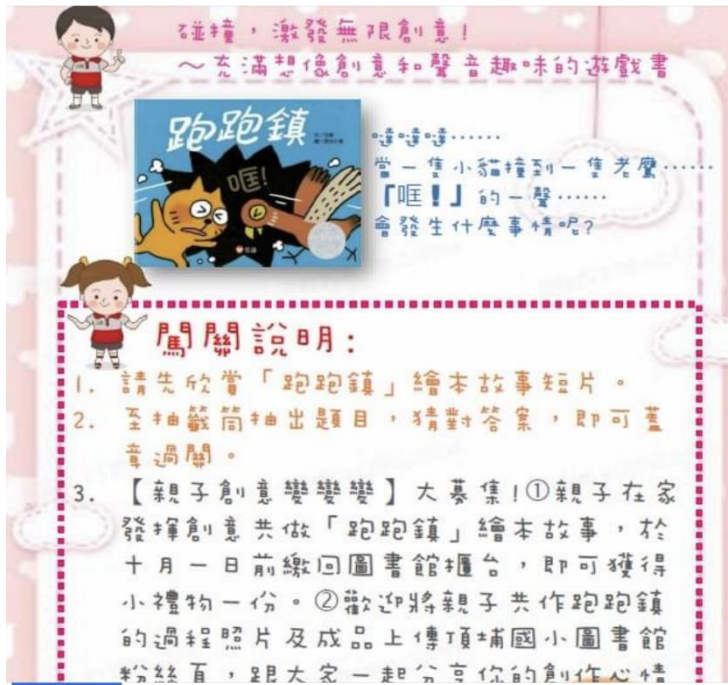 碰撞，激發無限創意！
～充滿想像創意和聲音趣味的遊戲書
跑跑鎮
哐！
噠噠噠……
當一隻小貓撞到一隻老鷹……
「哐！」的一聲……
會發生什麼事情呢？
闖關說明：
1. 請先欣賞「跑跑鎮」繪本故事短片。
2. 至抽籤筒抽出題目，猜對答案，即可蓋
章過關。
3. 【親子創意變變變】大募集！①親子在家
發揮創意共做「跑跑鎮」繪本故事，於
十月一日前繳回圖書館櫃台，即可獲得
小禮物一份。②歡迎將親子共作跑跑鎮
的過程照片及成品上傳頂埔國小圖書館
粉絲頁，跟大家一起分享你的創作心情